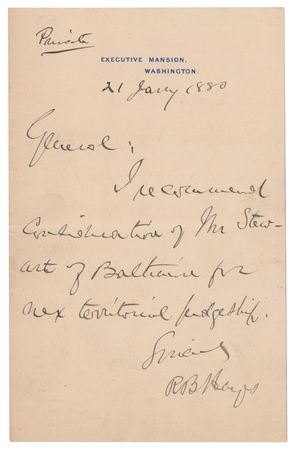 Private
EXECUTIVE MANSION,
WASHINGTON.
21 Jany 1880
General:
I recommend
consideration of Mr Stew-
art of Baltimore for
next territorial judgeship.
Sincerely
R B Hayes